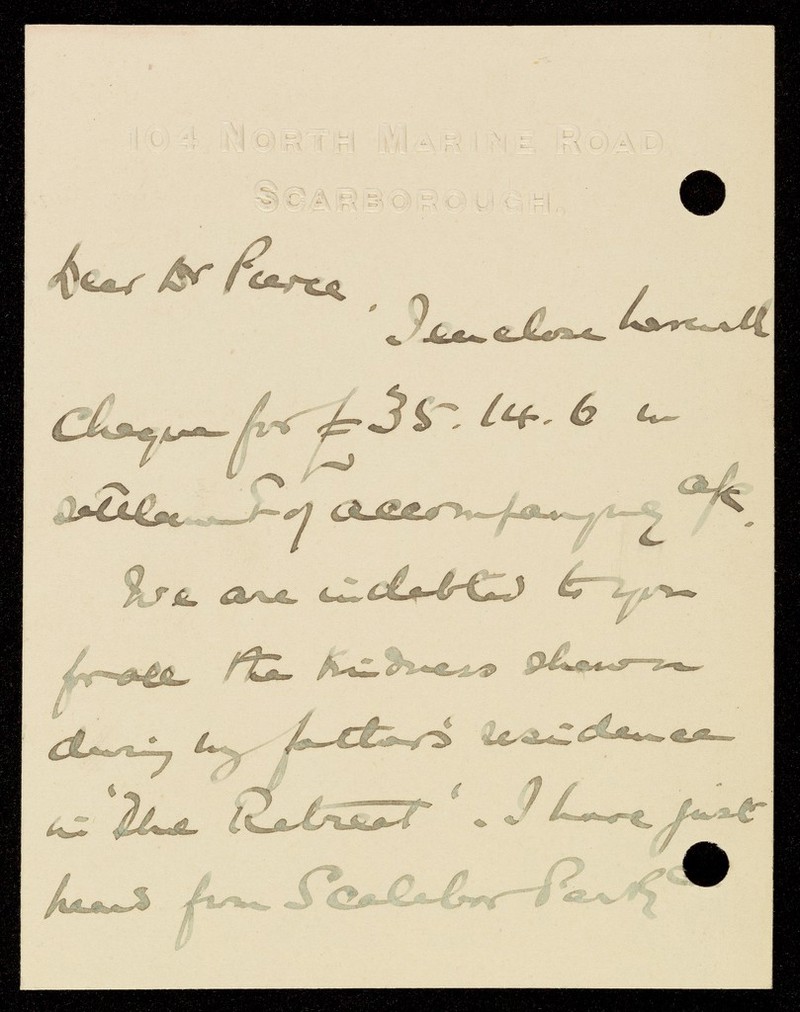 104, NORTH MARINE ROAD
SCARBOROUGH.
Dear Dr Pierce,
I enclose herewith
Cheque for £35.14.6 in
settlement of accompanying a/c.
We are indebted to you
for all the kindness shewn
during my father's residence
in 'The Retreat'. I have just
heard from Scalebor Park